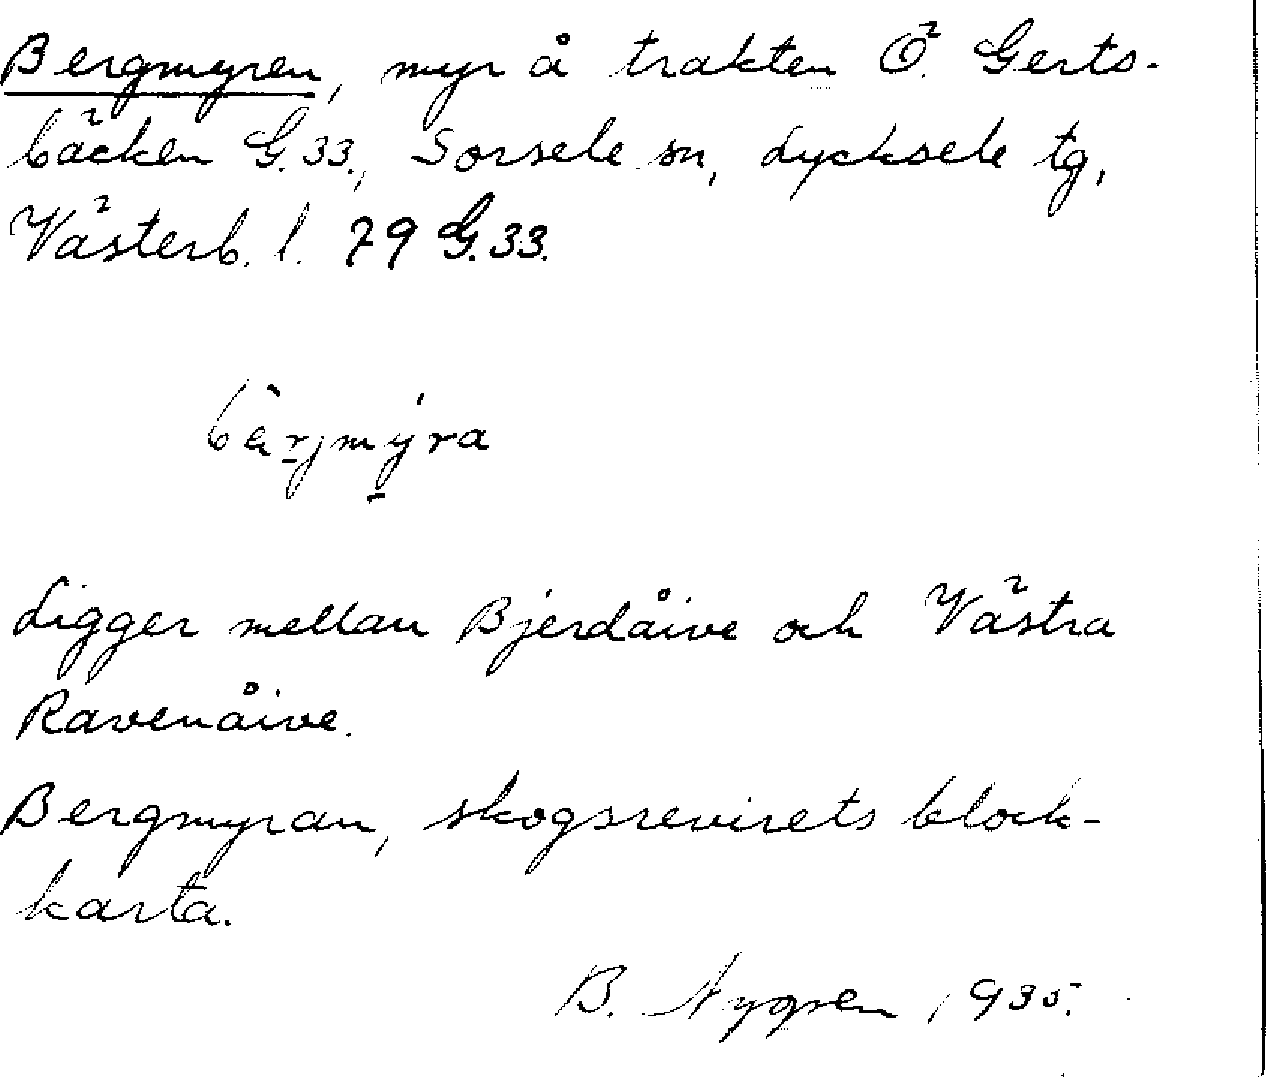 Bergmyren, myr å trakten Ö. Gerts-
bäcken G.33., Sorsele sn, Lycksele tg,
Västerb. l. 79 G.33.
bärjmýra
Ligger mellan Bjerdåive och Västra
Ravenåive.
Bergmyran, skogsrevirets block-
karta.
B. Nygren 1935.